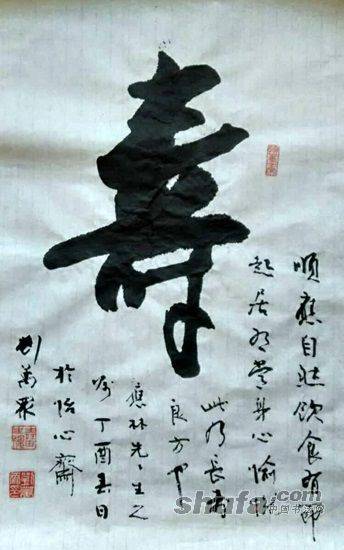 壽
順應自然飲食有節
起居有常身心愉悅
此乃長壽
良方也
應林先生之
嘱丁酉春日
於怡心齋
劉萬聚
shufa.com
中国书法网